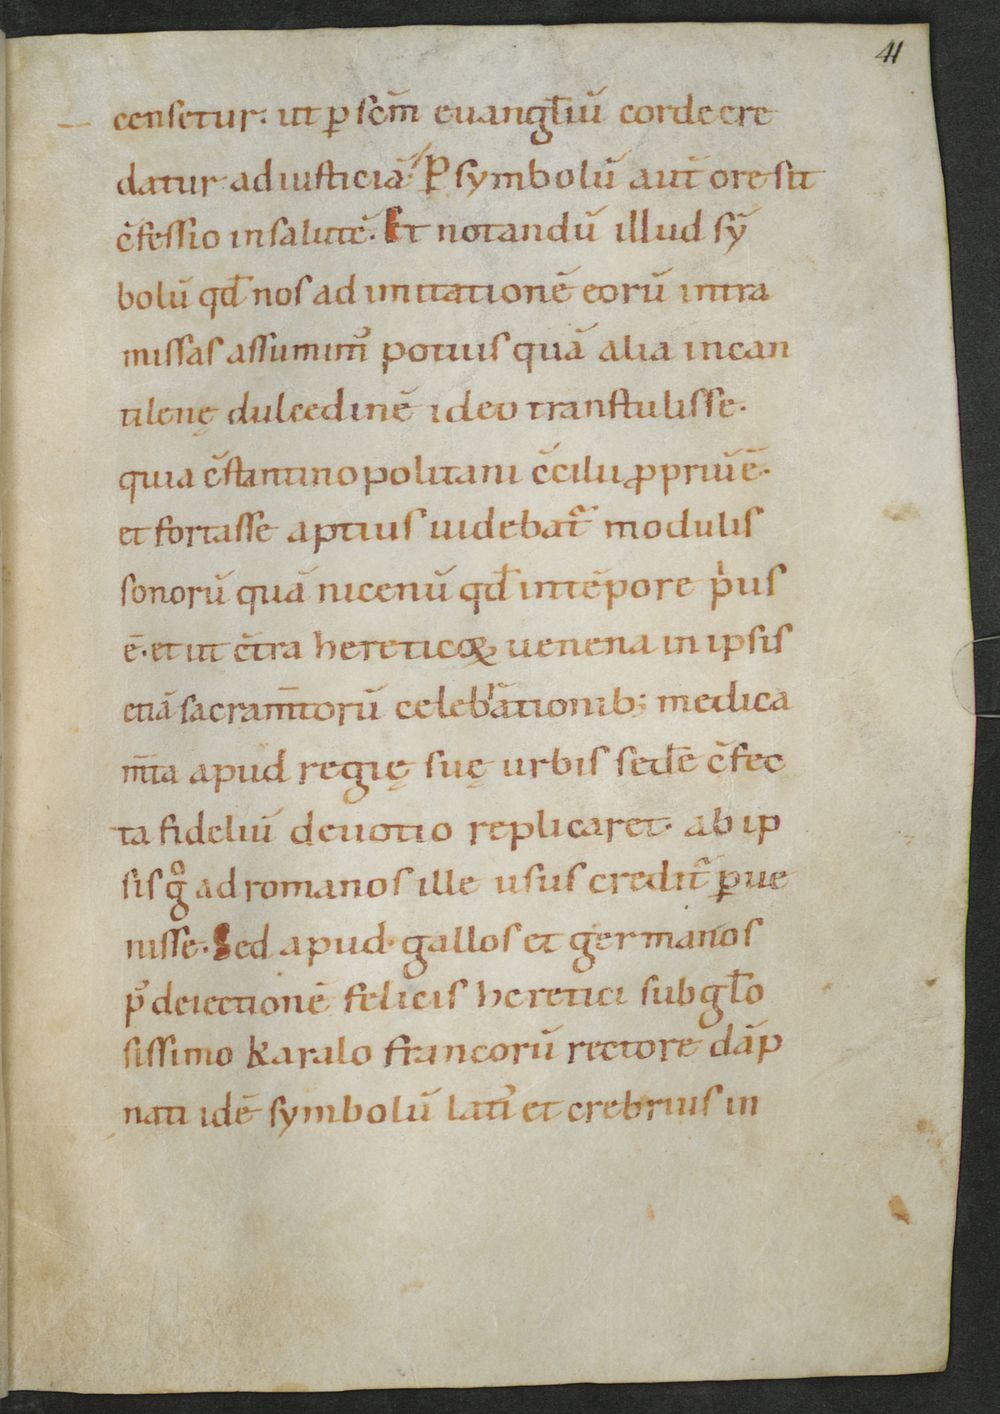 41
censetur· ut ꝑ scm̄ euangl̄iū corde cre
datur ad iusticiā· P symbolū aut̄ ore sit
c̄fessio in salutē· Et notandū illud sȳ
bolū qd̄ nos ad imitationē eorū intra
missas assumim᾽ potius quā alia in can
tilenę dulcedinē ideo transtulisse·
quia c̄stantinopolitani c̄cilii ꝓpriū ē·
et fortasse aptius uidebat᾽ modulis
sonorū quā nicenū qd̄ in tēpore pͥus
ē· et ut c̄tra hereticoꝝ uenena in ipsis
etiā sacram̄torū celebrationib; medica
m̄ta apud regię suę urbis sedē c̄fec
ta fideliū deuotio replicaret· ab ip
sis gͦ ad romanos ille usus credit᾽ ꝑue
nisse· Sed apud gallos et germanos
p᾽ deiectionē felicis heretici sub gl̄o
sissimo karalo francorū rectore dāp
nati idē symbolū lati᾽ et crebrius in